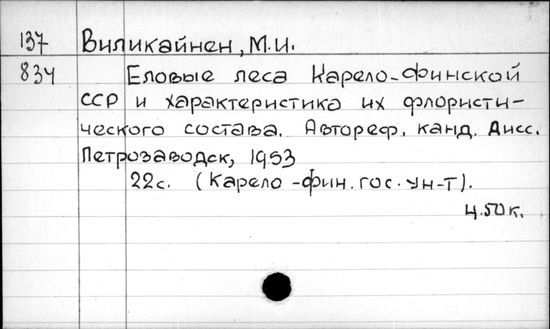 137 Виликайнен, М.И.
834 Еловые леса Карело-Финской
ССР и характеристика их флористи-
ческого состава. Автореф. канд. дисс.
Петрозаводск, 1953
22с. (Карело-фин. гос. ун-т).
4.50 к.